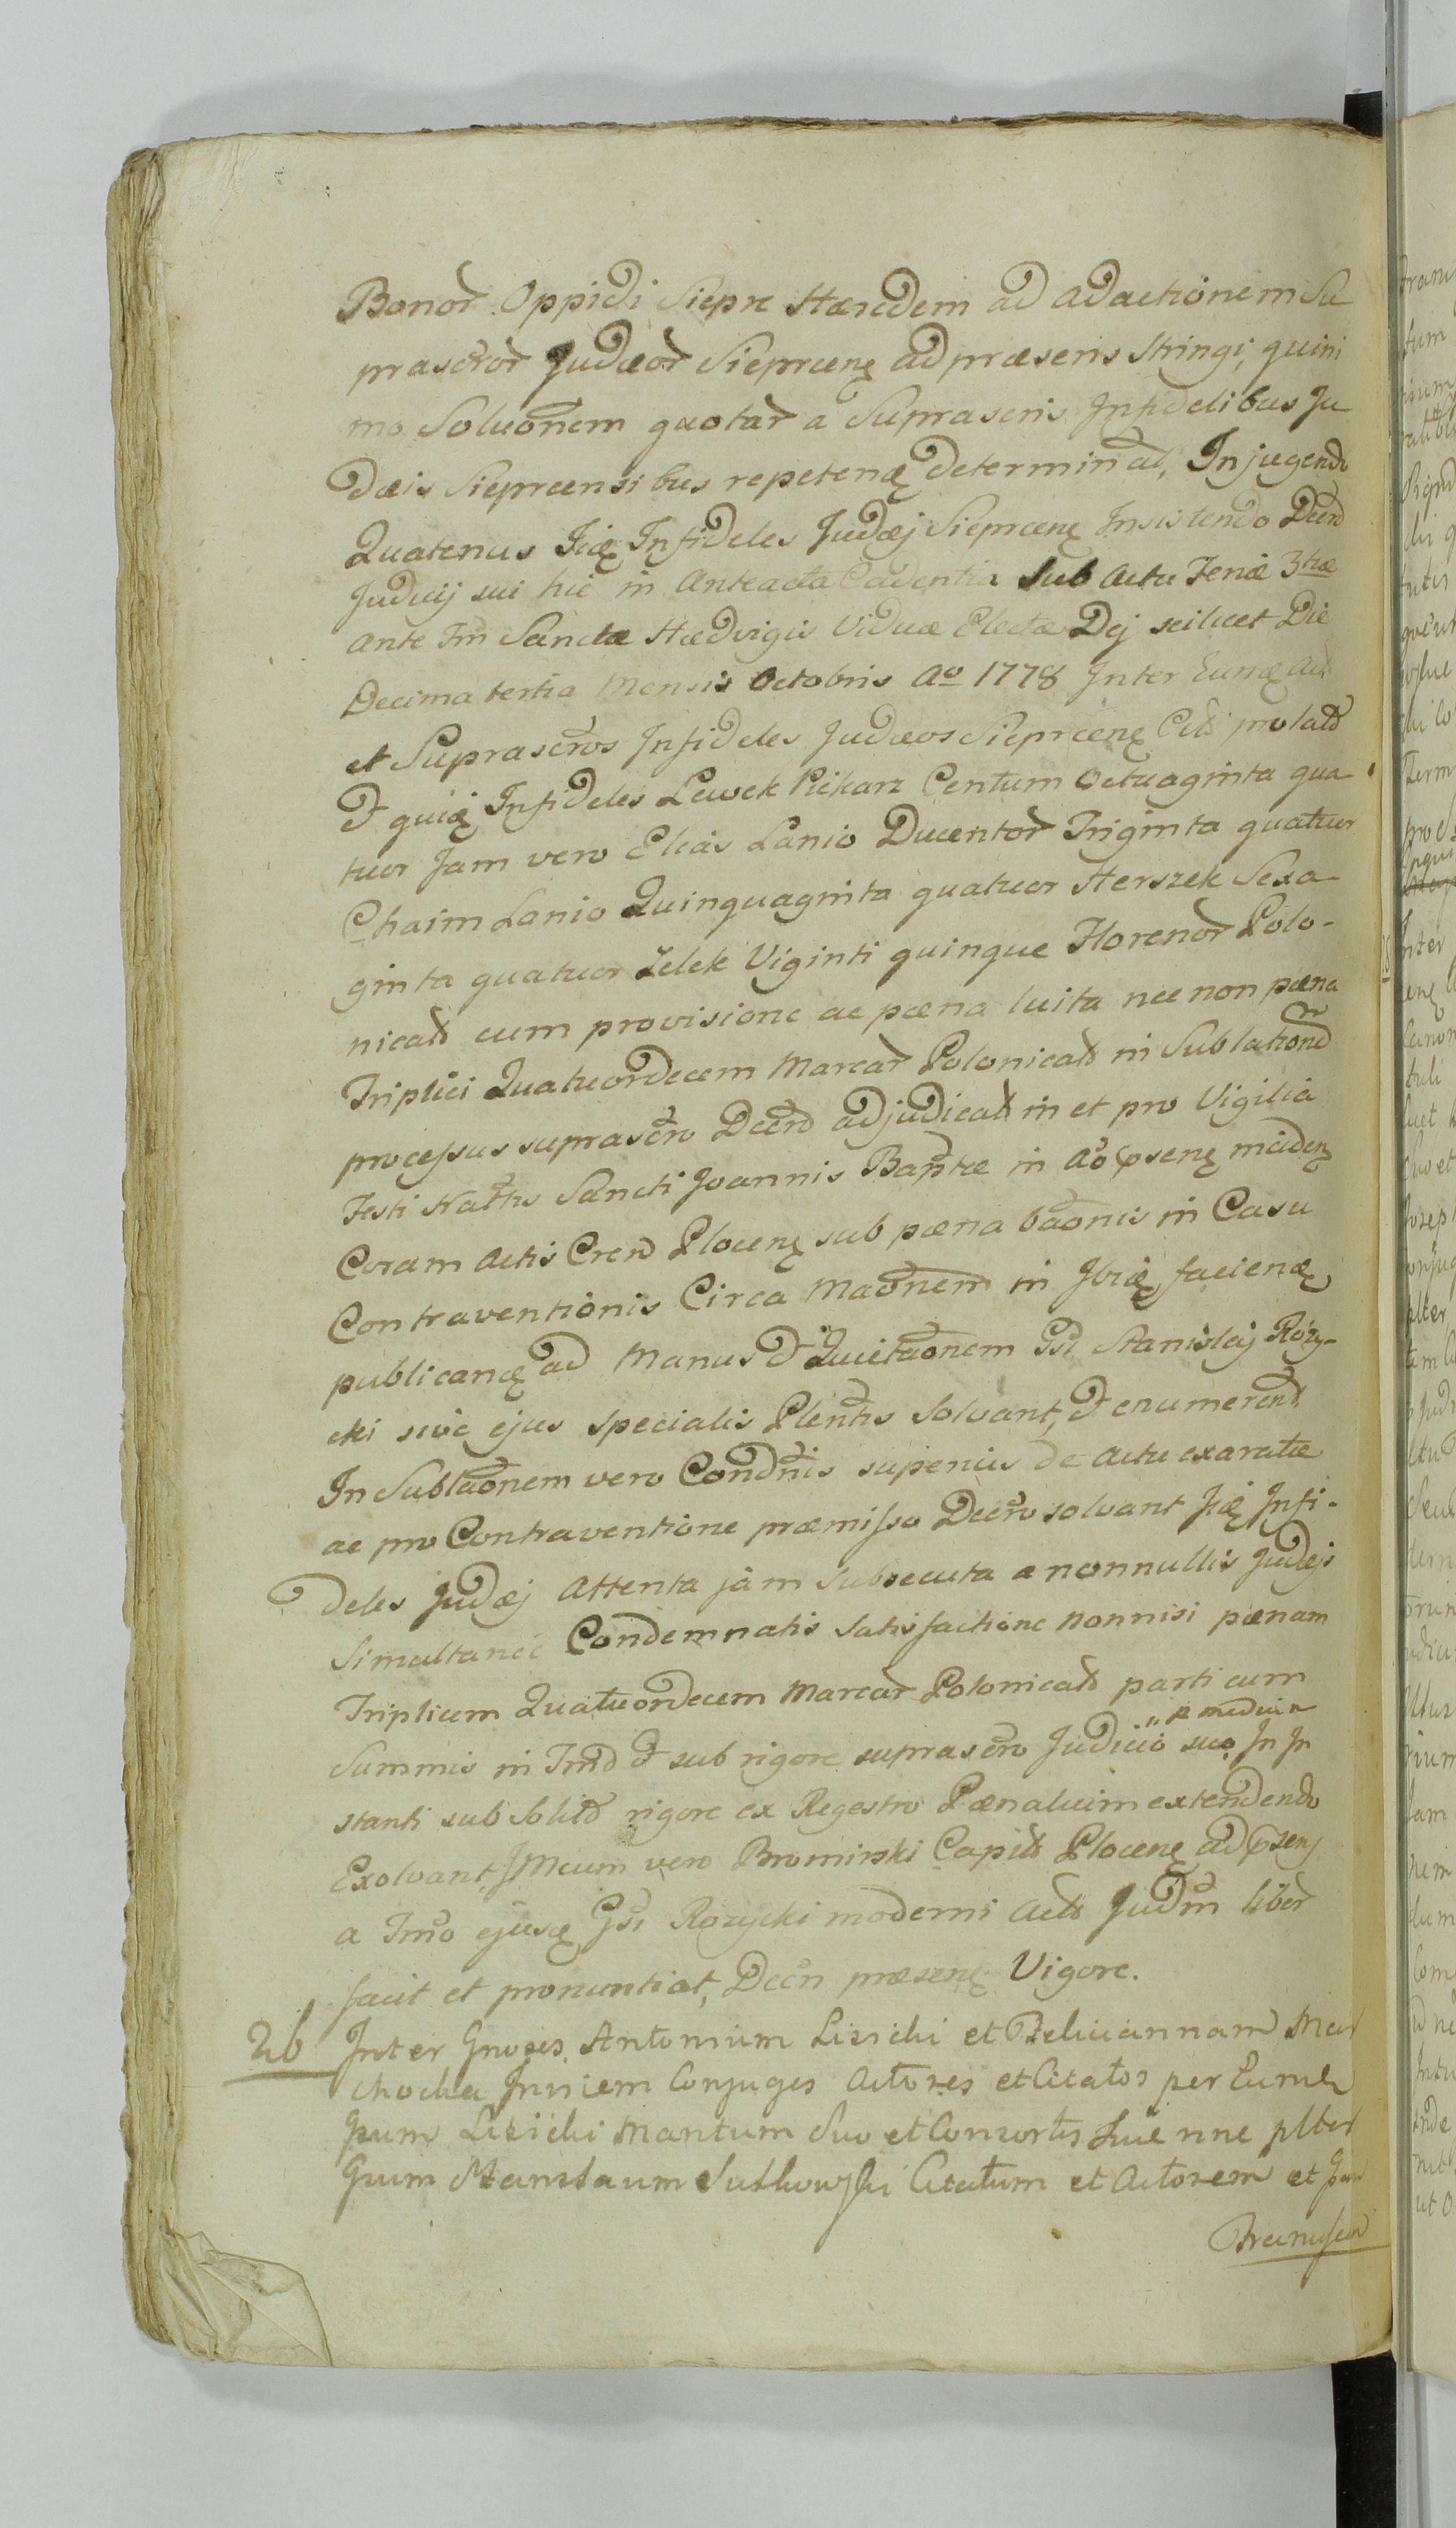 Bonor Oppidi Sieprc Hæredem ad adactionem Su
prascror Judæor Sieprcenę ad præsens stringi, quini
mo Soluonem quotar a Suprascris Infidelibus Ju
dæis Sieprcensibus repetenę determinat, Injugendo
Quatenus Iidę Infideles Judæj Sieprcenę Insistendo Decrō
Judicij sui hic in Anteacta Cadentia Sub Actu Feriæ 3tiæ
ante Fm Sanctæ Hædvigis Viduæ Electæ Dej scilicet Die
Decima tertia Mensis Octobris Ao 1778 Inter Eundę Act
et Suprascros Infideles Judæos Sieprcenę Citt prolato
et quidę Infideles Lewek Piekarz Centum Octuaginta qua
tuor Jam vero Elias Lanio Ducentor Triginta quatuor
Chaim Lanio Quinquaginta quatuor Herszek Sexa
ginta quatuor Zelek Viginti quinque Florenor Polo-
nicat cum provisione ac pæna luita nec non pæna
Triplici Quatuordecem Marcar Polonicat in Sublationē
processus suprascro Decro adjudicat in et pro Vigilia
Festi Nattis Sancti Joannis Baptæ in Ao psenę inciden
Coram Actis Cren Plocenę sub pæna baonis in Casu
Contraventionis Circa Maonem in Ibidę facienę
publicanę ad Manus et Quietaonem Gsi Stanislaj Rózy-
cki sive ejus specialis Plentis solvant, et enumerent
In Sublaonem vero Condnis superius de Actu exaratæ
ac pro Contraventione præmisso Decro solvant Iidę Infi-
deles Judæj Attenta jam Subsecuta a nonnullis Judæjs
Simultanee Condemnatis Satisfactione nonnisi pænam
Triplicem Quatuordecem Marcar Polonicat parti cum
Summis in Tmo et sub rigore suprascro Judicio suo In In
stanti sub Solito rigore ex Regestro Pænalium extendendo
Exolvant, IMcum vero Bromirski Capit Plocenę ad psens
a Tmo ejusdę Gsi Rozycki moderni Act Judm liber
facit et pronuntiat, Decri præsenę Vigore.
26 Inter Gnoses Antonium Lisicki et Feliciannam Mar
chocka Invicem Conjuges Actores et Citatos per Eunde
Gsum Lisicki Maritum Suo et Consortis Suæ nne plter
Gsum Stanislaum Sutkowski Citatum et Actorem et Gsu
Franciscum